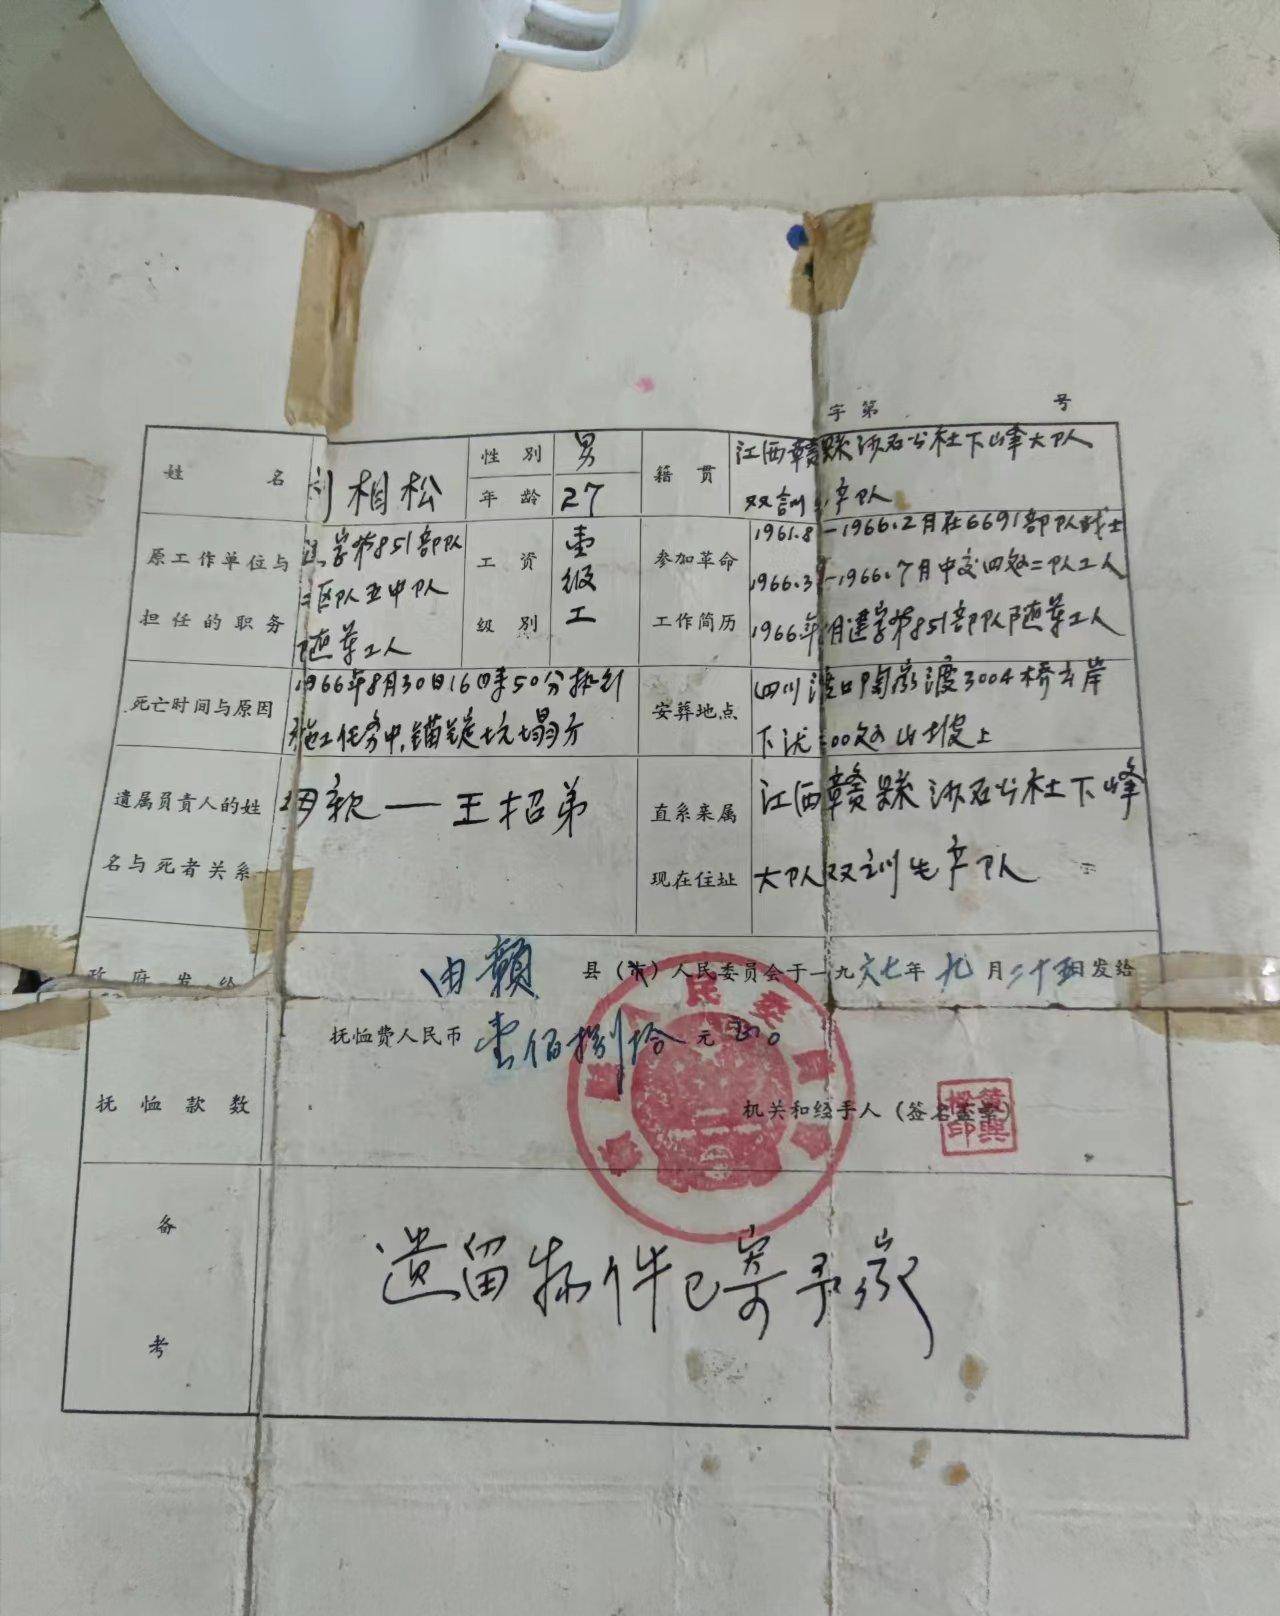 字第 号
姓名 相松 性别 男 籍贯 江西赣县 公社下峰大队
年龄 27 双 产队
原工作单位与担任的职务 字第851部队
区队 中队
工人
工资级别 壹级工
参加革命工作简历 1961.8—1966.2月在6691部队战士
1966.3—1966.7月中交四处二队工人
1966年 月建字第851部队 工人
死亡时间与原因 1966年8月30日16时50分执行
施工任务中,锚碇坑塌方
安葬地点 四川渡口 渡3004桥 岸
下 00 山坡上
遗属负责人的姓名与死者关系 母亲—王招弟
直系亲属现在住址 江西赣县 公社下峰
大队双 生产队
政府发给 由赣县(市)人民委员会于一九六七年九月二十五日发给
抚恤款数 抚恤费人民币 壹佰捌拾元
机关和经手人(签名盖章)
备考 遗留物件已寄予家